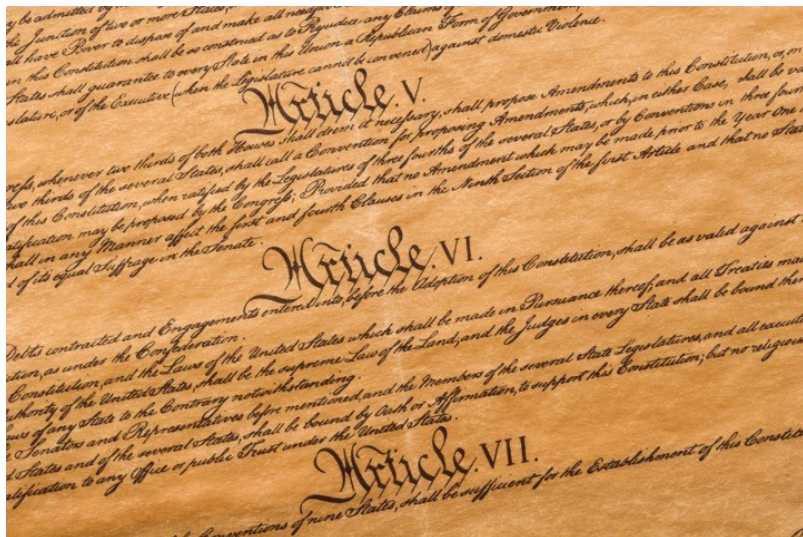 y be admitted by the
the Junction of two or more States,
all have Power to dispose of and make all needful
in this Constitution shall be so construed as to Prejudice any Claims of
States shall guarantee to every State in this Union a Republican Form of Government,
slature, or of the Executive (when the Legislature cannot be convened) against domestic Violence.
Article. V.
ress, whenever two thirds of both Houses shall deem it necessary, shall propose Amendments to this Constitution, or, on
two thirds of the several States, shall call a Convention for proposing Amendments, which, in either Case, shall be va
of this Constitution, when ratified by the Legislatures of three fourths of the several States, or by Conventions in three four
atification may be proposed by the Congress; Provided that no Amendment which may be made prior to the Year One
hall in any Manner affect the first and fourth Clauses in the Ninth Section of the first Article and that no Stat
d of its equal Suffrage in the Senate.
Article. VI.
Debts contracted and Engagements entered into, before the Adoption of this Constitution, shall be as valid against
ution, as under the Confederation.
Constitution, and the Laws of the United States which shall be made in Pursuance thereof; and all Treaties mad
uthority of the United States, shall be the supreme Law of the Land; and the Judges in every State shall be bound ther
aws of any State to the Contrary notwithstanding.
e Senators and Representatives before mentioned, and the Members of the several State Legislatures, and all execut
d States and of the several States, shall be bound by Oath or Affirmation, to support this Constitution; but no religious
alification to any Office or public Trust under the United States.
Article. VII.
Conventions of nine States, shall be sufficient for the Establishment of this Constit